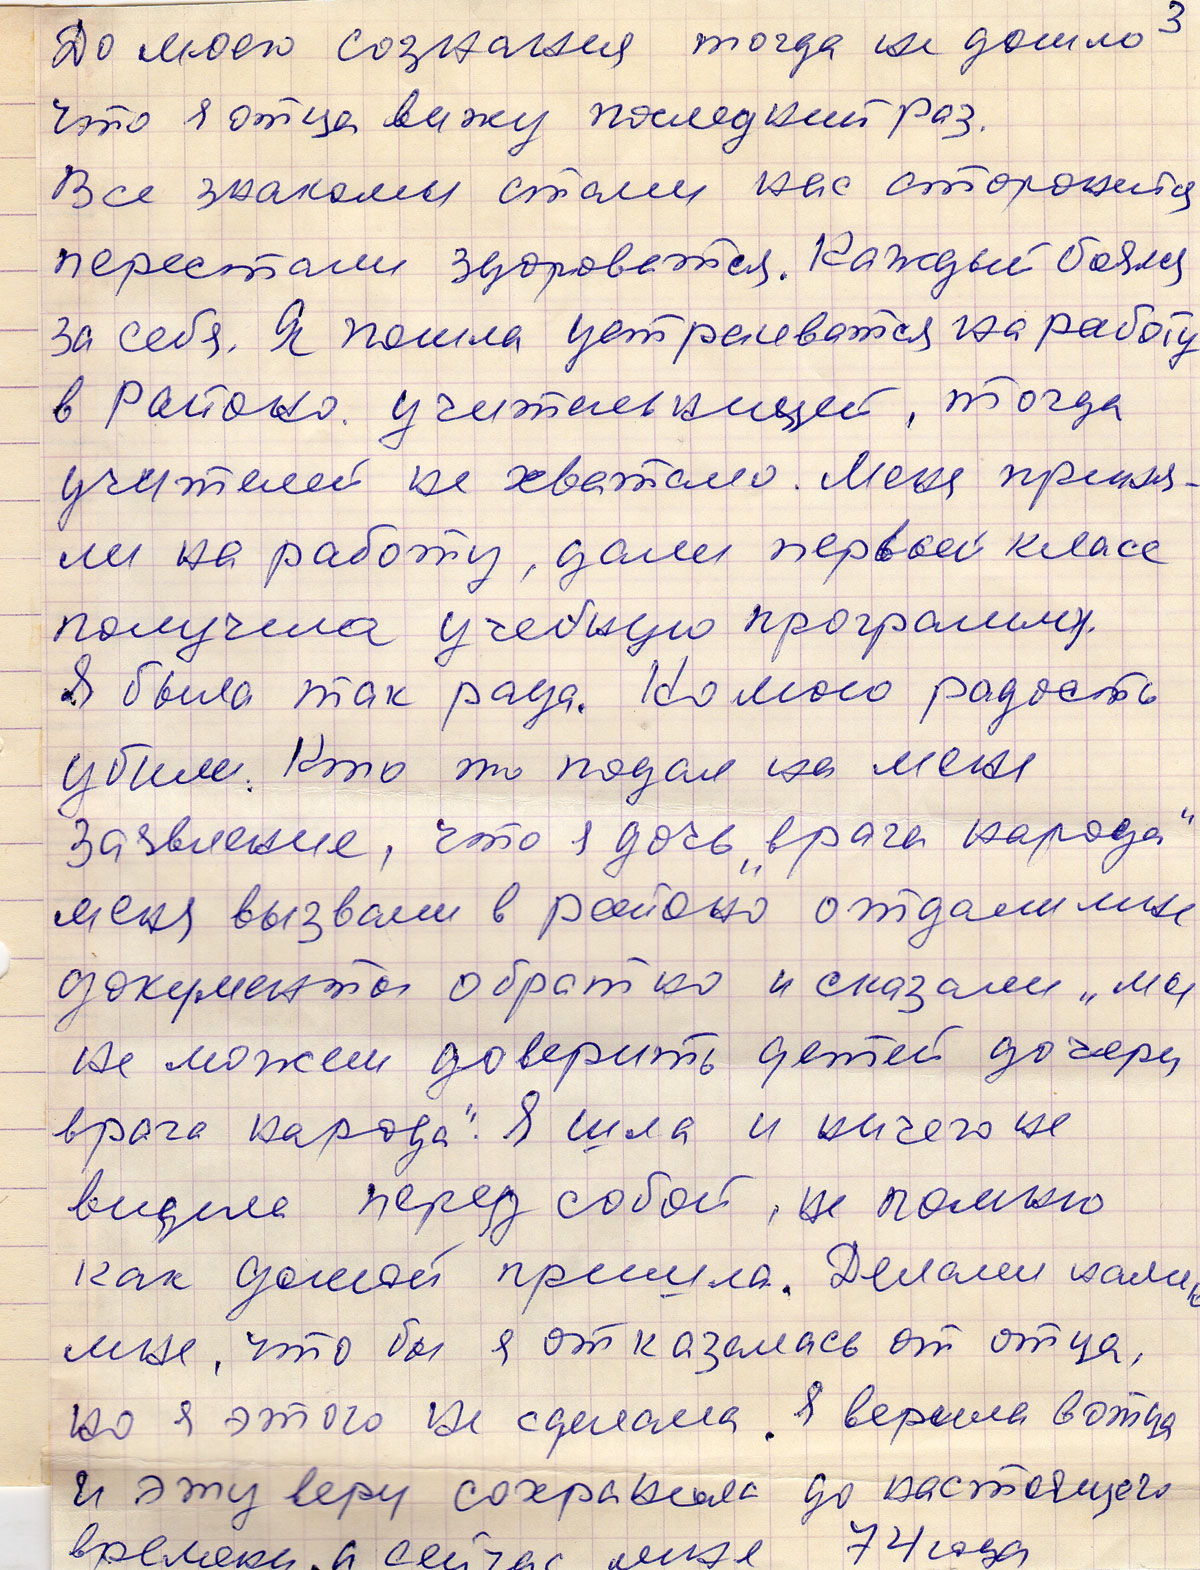 3
До моего сознания тогда не дошло
что я отца вижу последний раз.
Все знакомы стали нас сторонится
перестали здороватся. Каждый боялся
за себя. Я пошла устраиватся на работу
в Районо. учительницей, тогда
учителей не хватало. Меня приня-
ли на работу, дали первый класс
получила учебную программу.
Я была так рада. Но мою радость
убили. Кто то подал на меня
заявление, что я дочь „врага народа"
меня вызвали в районо отдали мне
документы обратно и сказали „мы
не можем доверить детей дочери
врага народа". Я шла и ничего не
видила перед собой, не помню
как домой пришла. Делали намек
мне, что бы я отказалась от отца,
но я этого не сделала. Я верила в отца
и эту веру сохранила до настоящего
времени, а сейчас мне 74 года